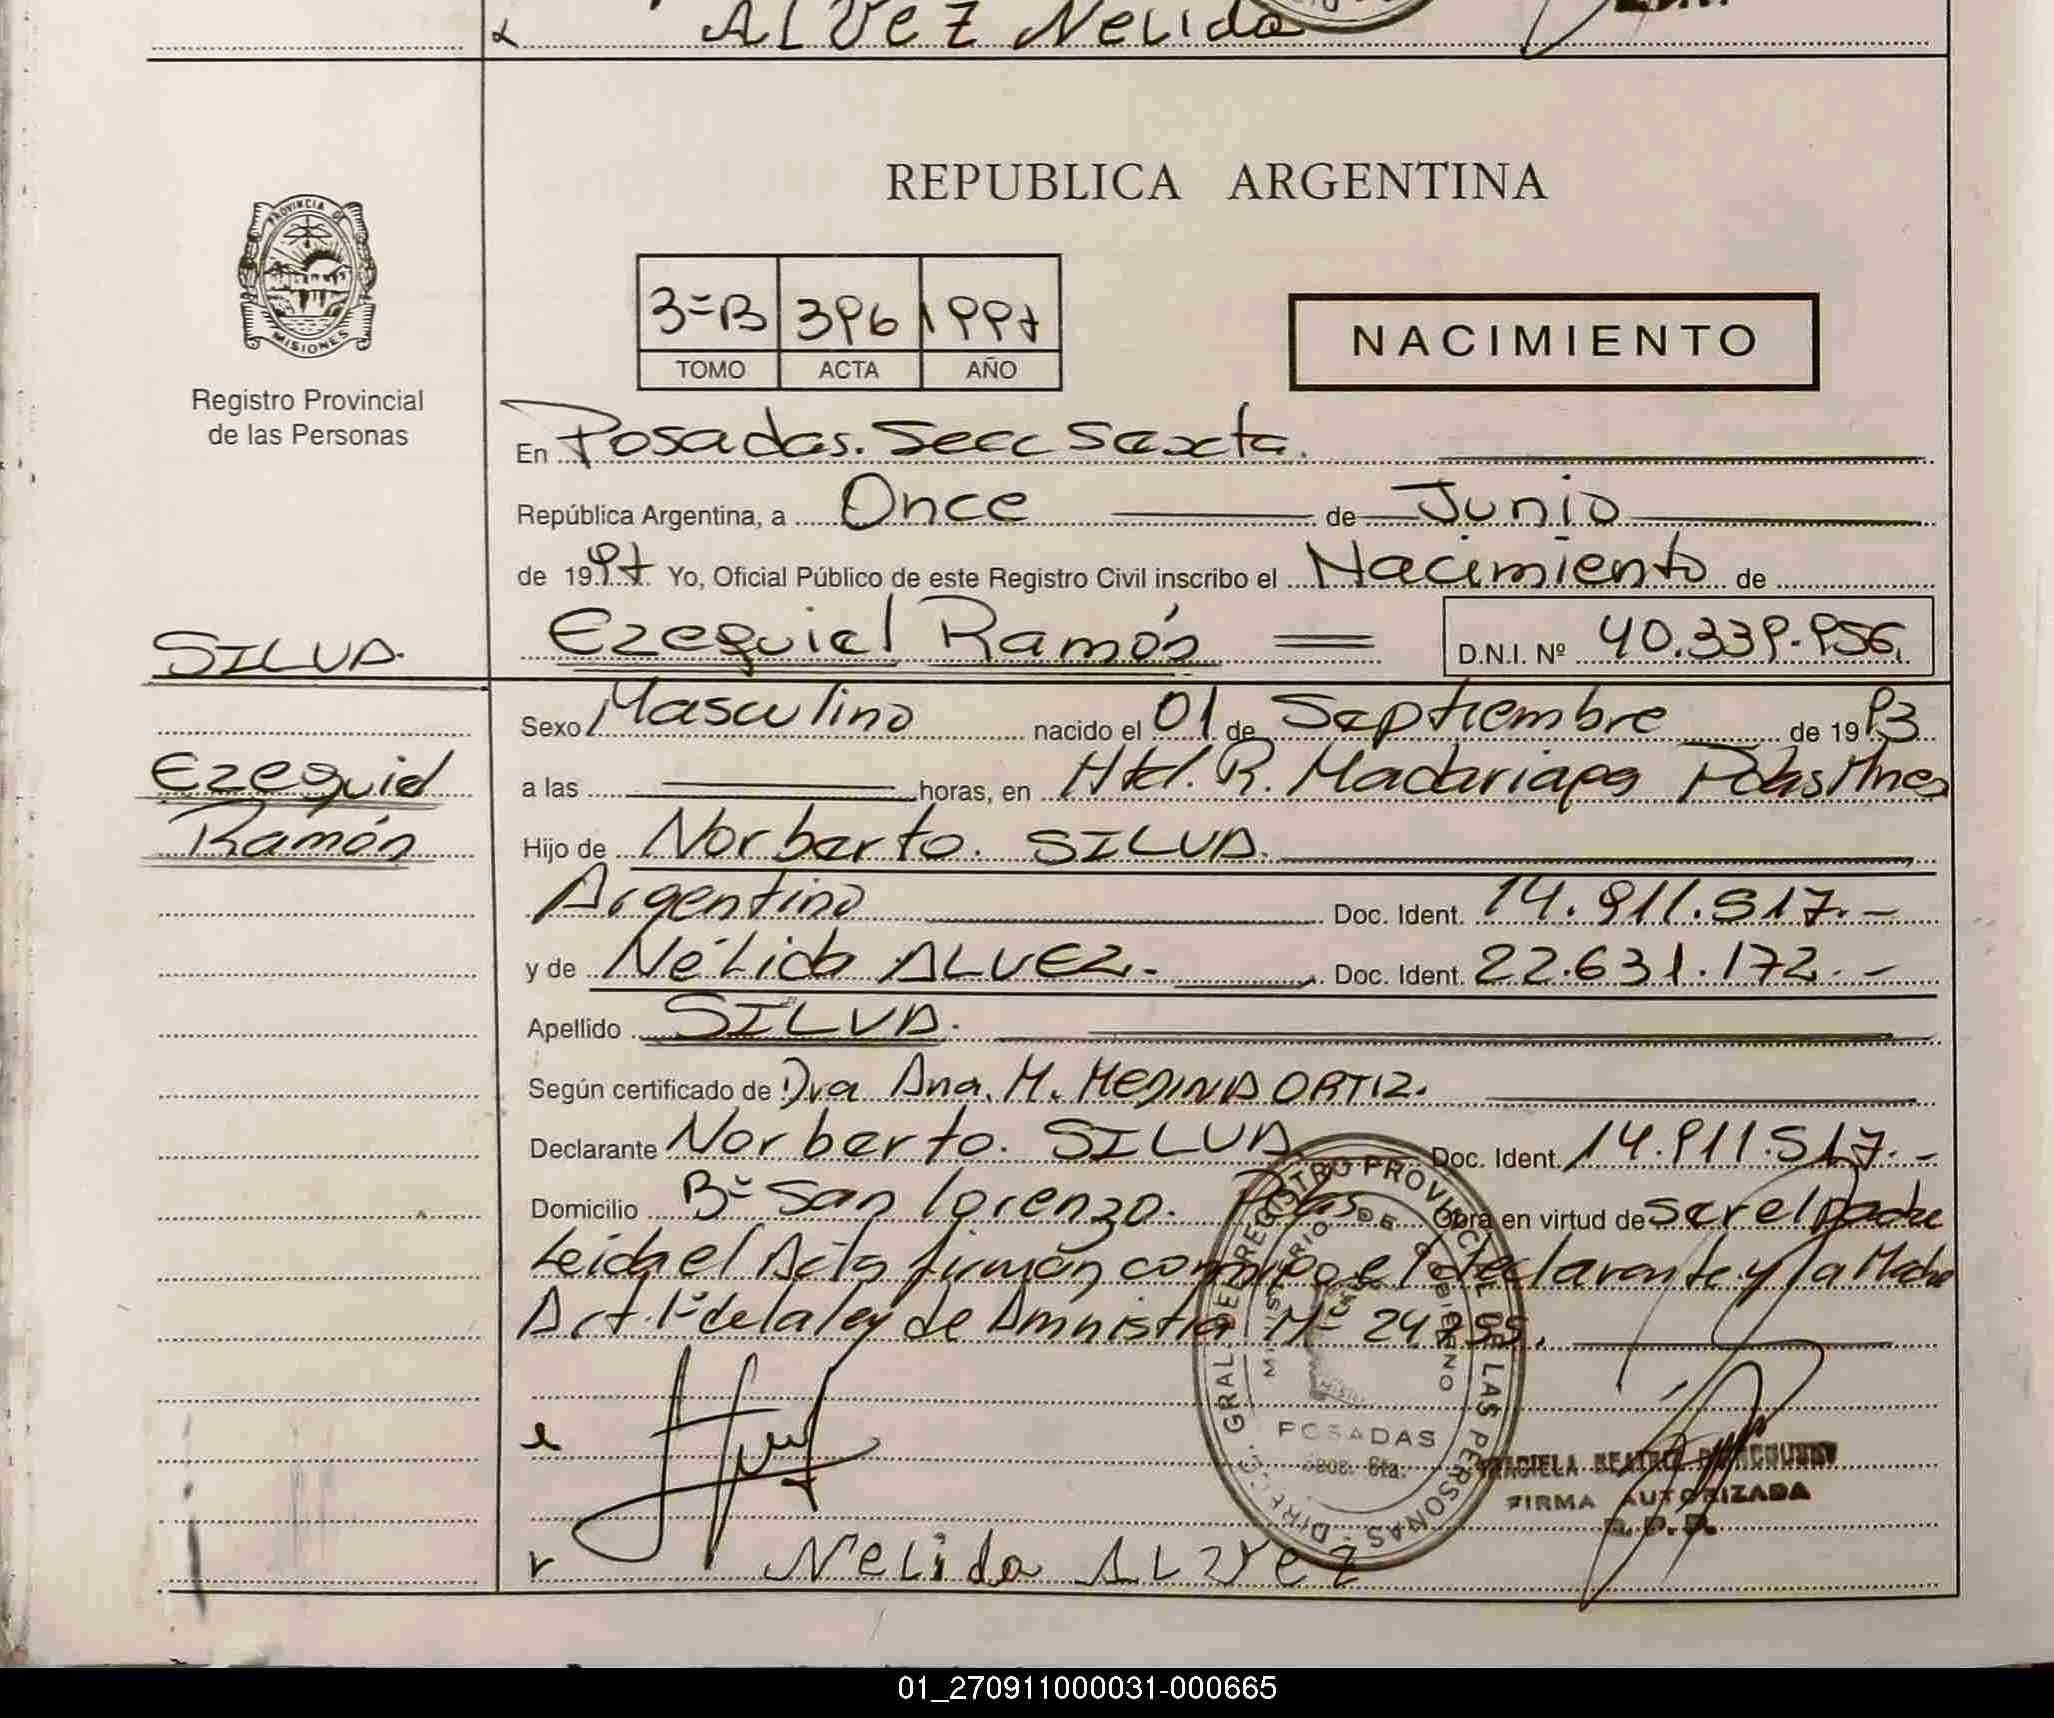 ALVEZ Nelida
REPUBLICA ARGENTINA
PROVINCIA DE MISIONES
Registro Provincial
de las Personas
3=B 396 1997
TOMO ACTA AÑO
NACIMIENTO
En Posadas. Secc Sexta.
República Argentina, a Once de Junio
de 1997 Yo, Oficial Público de este Registro Civil inscribo el Nacimiento de
SILVA. Ezequiel Ramón D.N.I. Nº 40.339.956.
Sexo Masculino nacido el 01 de Septiembre de 1993
Ezequiel
Ramón
a las horas, en Htal. R. Madariaga Pdas Mnes
Hijo de Norberto. SILVA.
Argentino Doc. Ident. 14.911.517.-
y de Nélida ALVEZ.- Doc. Ident. 22.631.172.-
Apellido SILVA.
Según certificado de Dra Ana. M. MEDINA ORTIZ.
Declarante Norberto. SILVA Doc. Ident. 14.911.517.-
Domicilio Bº San Lorenzo. Pdas Obra en virtud de ser el padre
Leida el Acta firman conmigo el declarante y la Madre
Art. 1º de la ley de Amnistia Nº 24.755.
DIREC. GRAL. DEL REGISTRO PROVINCIAL DE LAS PERSONAS
MINISTERIO DE GOBIERNO
POSADAS
Secc. 6ta.
GRACIELA BEATRIZ
FIRMA AUTORIZADA
R.P.P.
Nelida ALVEZ
01_270911000031-000665